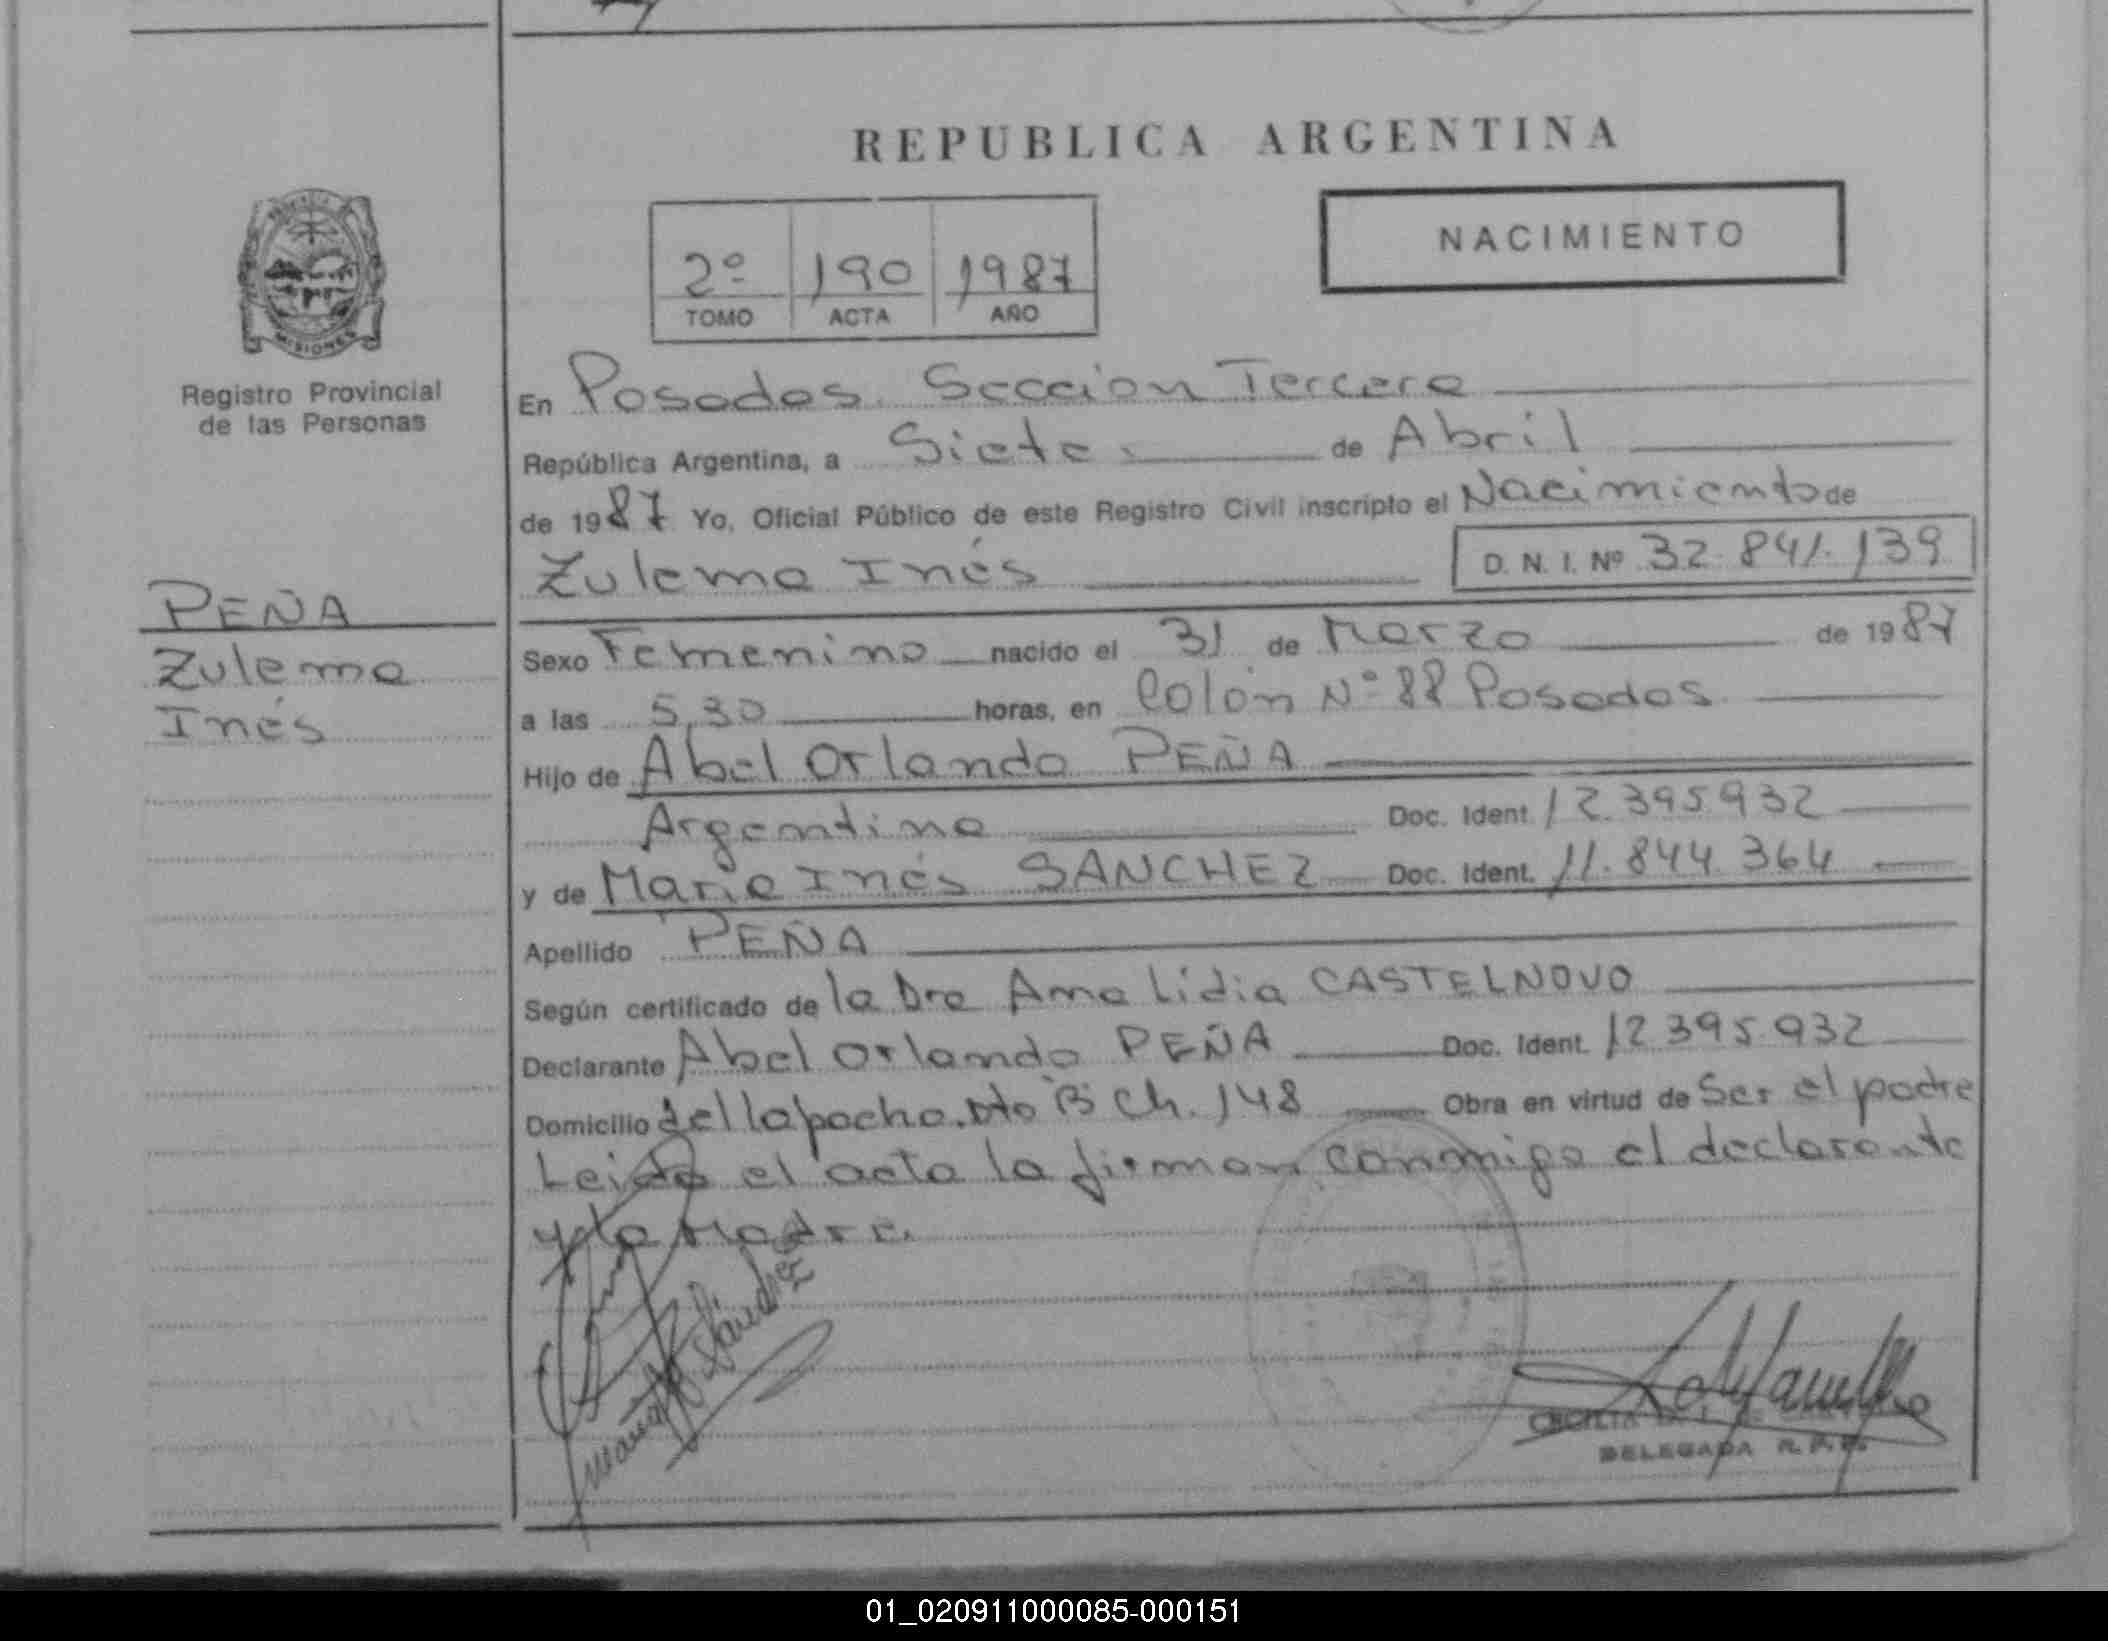 REPUBLICA ARGENTINA
NACIMIENTO
2º 190 1987
TOMO ACTA AÑO
MISIONES
Registro Provincial
de las Personas
PEÑA
Zulema
Inés
En Posadas. Seccion Tercera
República Argentina, a Siete de Abril
de 1987 Yo, Oficial Público de este Registro Civil inscripto el Nacimiento de
Zulema Inés D. N. I. Nº 32.841.139
Sexo Femenino nacido el 31 de Marzo de 1987
a las 5,30 horas, en Colón Nº 88 Posadas
Hijo de Abel Orlando PEÑA
Argentina Doc. Ident. 12.395.932
y de Maria Inés SANCHEZ Doc. Ident. 11.844.364
Apellido PEÑA
Según certificado de la Dra Ana Lidia CASTELNOVO
Declarante Abel Orlando PEÑA Doc. Ident. 12.395.932
Domicilio del lapacho. Dto B Ch. 148 Obra en virtud de Ser el padre
Leida el acta la firman conmigo el declarante
y la Madre.
Sánchez
CECILIA
DELEGADA R. P. P.
01_020911000085-000151